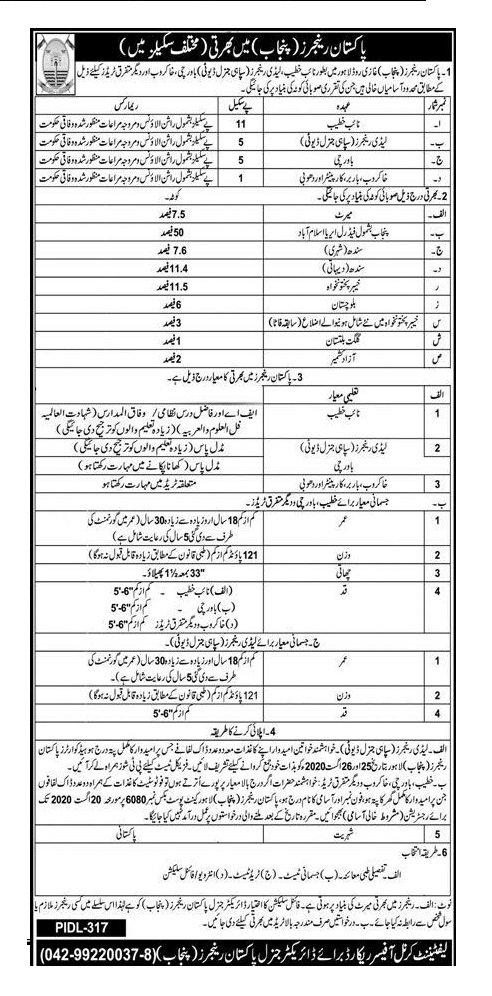 پاکستان رینجرز (پنجاب) میں بھرتی (مختلف سکیلز میں)
1۔ پاکستان رینجرز (پنجاب) غازی روڈ لاہور میں بطور نائب خطیب، لیڈی رینجرز (سپاہی جنرل ڈیوٹی) باورچی، خاکروب اور دیگر متفرق ٹریڈز کیلئے ذیل
کے مطابق محدود آسامیاں خالی ہیں جن کی تقرری صوبائی کوٹہ کی بنیاد پر کی جائیگی۔
نمبر شمار عہدہ پے سکیل ریمارکس
ا۔ نائب خطیب 11 پے سکیلز بشمول راشن الاؤنس و مروجہ مراعات منظور شدہ وفاقی حکومت
ب۔ لیڈی رینجرز (سپاہی جنرل ڈیوٹی) 5 پے سکیلز بشمول راشن الاؤنس و مروجہ مراعات منظور شدہ وفاقی حکومت
ج۔ باورچی 5 پے سکیلز بشمول راشن الاؤنس و مروجہ مراعات منظور شدہ وفاقی حکومت
د۔ خاکروب، باربر، کارپینٹر اور دھوبی 1 پے سکیلز بشمول راشن الاؤنس و مروجہ مراعات منظور شدہ وفاقی حکومت
2۔ بھرتی درج ذیل صوبائی کوٹہ کی بنیاد پر کی جائیگی۔ کوٹہ۔
الف۔ میرٹ 7.5 فیصد
ب۔ پنجاب بشمول فیڈرل ایریا اسلام آباد 50 فیصد
ج۔ سندھ (شہری) 7.6 فیصد
د۔ سندھ (دیہاتی) 11.4 فیصد
ر خیبر پختونخواہ 11.5 فیصد
ز بلوچستان 6 فیصد
س خیبر پختونخواہ میں نئے شامل ہونیوالے اضلاع (سابقہ فاٹا) 3 فیصد
ش گلگت بلتستان 1 فیصد
ص آزاد کشمیر 2 فیصد
3۔ پاکستان رینجرز میں بھرتی کا معیار درج ذیل ہے۔
الف تعلیمی معیار
1 نائب خطیب ایف اے اور فاضل درس نظامی/ وفاق المدارس (شہادت العالمیہ
فی العلوم والعربیہ) (زیادہ تعلیم والوں کو ترجیح دی جائیگی)
2 لیڈی رینجرز (سپاہی جنرل ڈیوٹی) مڈل پاس (زیادہ تعلیم والوں کو ترجیح دی جائیگی)
باورچی مڈل پاس (کھانا پکانے میں مہارت رکھتا ہو)
3 خاکروب، باربر، کارپینٹر اور دھوبی متعلقہ ٹریڈ میں مہارت رکھتا ہو
ب۔ جسمانی معیار برائے خطیب، باورچی و دیگر متفرق ٹریڈز۔
1 عمر کم از کم 18 سال اور زیادہ سے زیادہ 30 سال (عمر میں گورنمنٹ کی
طرف سے دی گئی 5 سال کی رعایت شامل ہے)
2 وزن 121 پاؤنڈ کم از کم (طبی قانون کے مطابق زیادہ قابل قبول نہ ہوگا)
3 چھاتی 33" بمعہ 1½ پھیلاؤ۔
4 قد (الف) نائب خطیب ۔ کم از کم 5'-6"
(ب) باورچی ۔ کم از کم 5'-6"
(د) خاکروب و دیگر متفرق ٹریڈز کم از کم 5'-6"
ج۔ جسمانی معیار برائے لیڈی رینجرز (سپاہی جنرل ڈیوٹی)۔
1 عمر کم از کم 18 سال اور زیادہ سے زیادہ 30 سال (عمر میں گورنمنٹ کی
طرف سے دی گئی 5 سال کی رعایت شامل ہے)۔
2 وزن 121 پاؤنڈ کم از کم (طبی قانون کے مطابق زیادہ قابل قبول نہ ہوگا)
4 قد کم از کم 5'-6"
4۔ اپلائی کرنے کا طریقہ
الف۔ لیڈی رینجرز (سپاہی جنرل ڈیوٹی)۔ خواہشمند خواتین امیدوار اپنے کاغذات معہ دو عدد ڈاک لفافے جس پر امیدوار کا مکمل پتہ درج ہو ہیڈ کوارٹرز پاکستان
رینجرز (پنجاب) لاہور تاریخ 25 اور 26 اگست 2020 کو بذات خود جمع کروانے کیلئے تشریف لائیں۔ فزیکل ٹیسٹ کیلئے پی ٹی شوز ہمراہ لے کر آئیں۔
ب۔ خطیب، باورچی، خاکروب و دیگر متفرق ٹریڈز: خواہشمند حضرات اگر درج بالا معیار پر پورے اترتے ہوں تو فوٹو سٹیٹ کاغذات کے ہمراہ دو عدد ڈاک لفافوں
جن پر امیدوار کا مکمل گھر کا پتہ ہو، فون نمبر اور آسامی کا نام درج ہو، پاکستان رینجرز (پنجاب) لاہور کینٹ پوسٹ بکس نمبر 6080 پر مورخہ 20 اگست 2020 تک
برائے رجسٹریشن (مشروط خالی آسامی) بھجوائیں۔ مقررہ تاریخ کے بعد ملنے والی درخواستوں پر عمل درآمد نہیں کیا جائیگا۔
5 شہریت پاکستانی
6۔ طریقہ انتخاب
الف۔ تفصیلی طبی معائنہ۔ (ب) جسمانی ٹیسٹ۔ (ج) ٹریڈ ٹیسٹ۔ (د) انٹرویو/ فائنل سلیکشن
نوٹ: الف۔ رینجرز میں بھرتی میرٹ کی بنیاد پر ہوتی ہے۔ فائنل سلیکشن کا اختیار ڈائریکٹر جنرل پاکستان رینجرز (پنجاب) کو ہے لہذا اس سلسلے میں کسی رینجرز ملازم یا
سول شخص سے رابطہ نہ کیا جائے۔ ب۔ درخواستیں صرف مندرجہ بالا ٹریڈ میں بھرتی کیلئے دی جائیں۔
PIDL-317
لیفٹیننٹ کرنل آفیسر ریکارڈ برائے ڈائریکٹر جنرل پاکستان رینجرز (پنجاب) (042-99220037-8)